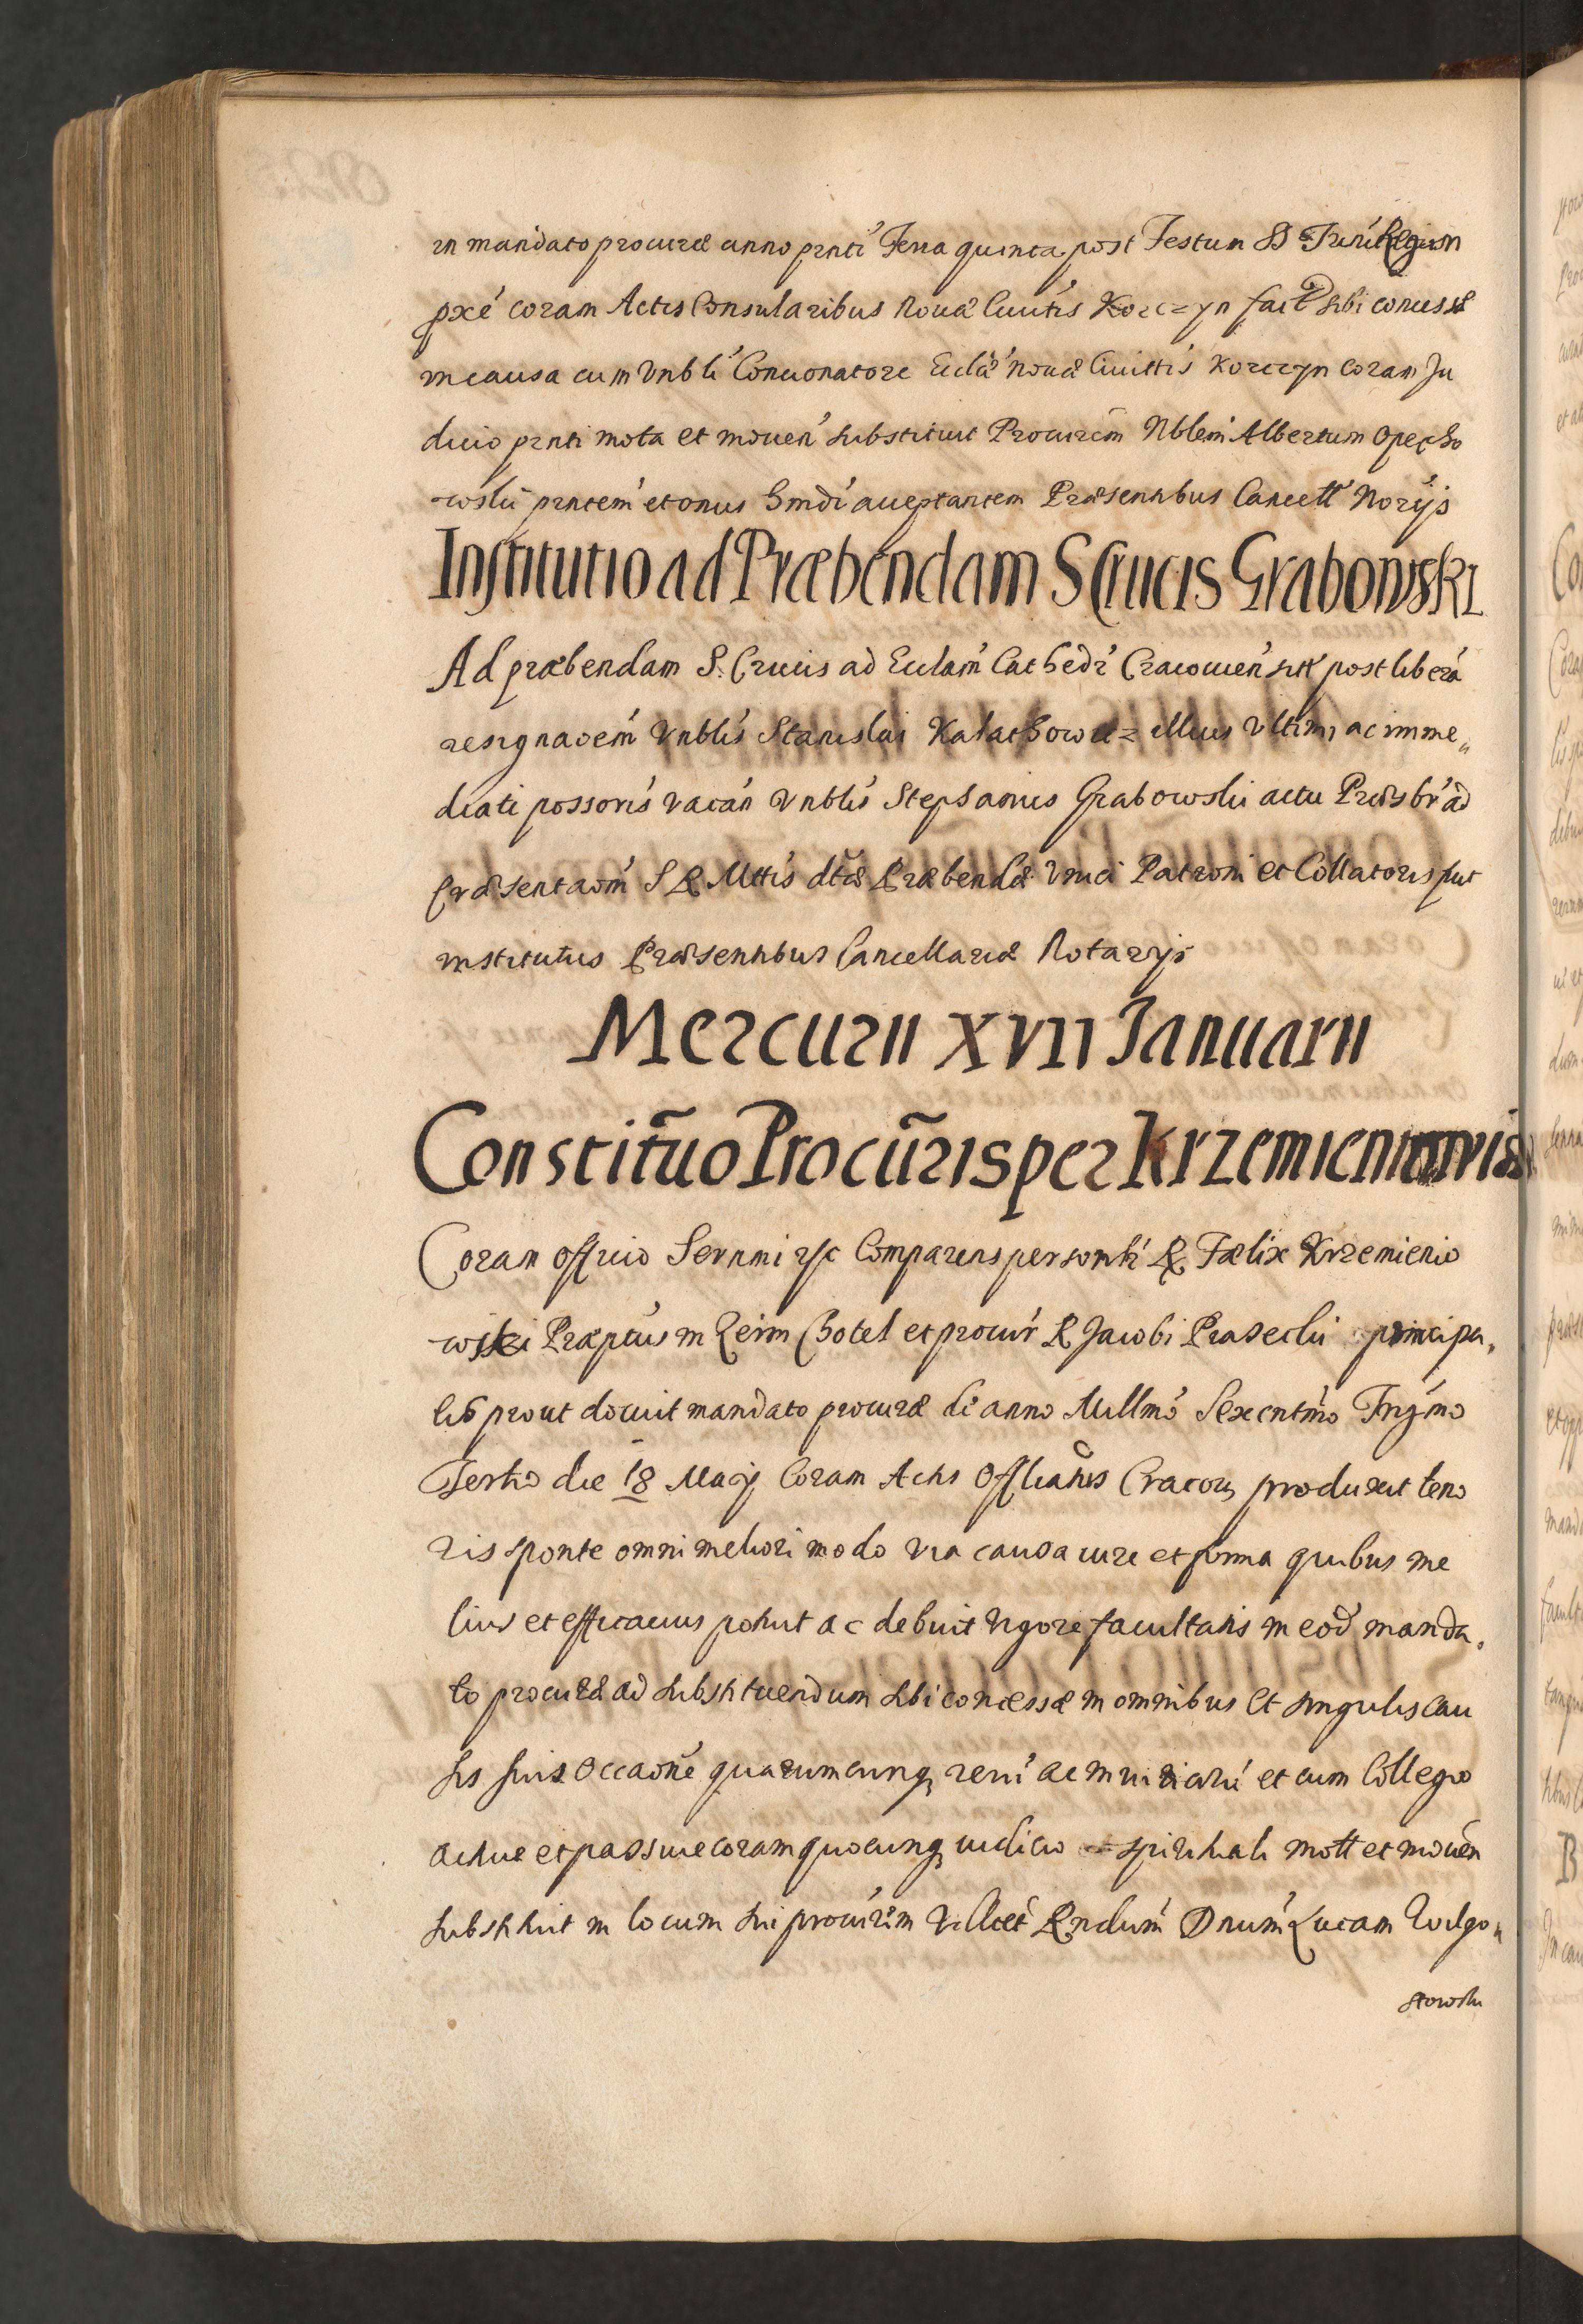 in mandato procuræ anno pꝛnti Feria quinta post Festum SS Trium Regum
pxe coram Actis Consularibus Nouæ Ciuitis Korczyn fact sibi concessæ
in causa cum Vnbli Concionatore Ecclæ Nouæ Ciuittis Korczyn coram Ju
dicio prnti mota et mouen substituit Procurem Nblem Albertum Opecho
wski prntem et onus hmdi acceptantem Præsentibus Cancell Norijs
Institutio ad Præbendam S Crucis Grabowski
Ad præbendam S. Crucis ad Ecclam Cathedr Cracouien sitt post liberā
resignaoem Vnblis Stanislai Kałachowicz illius Vltimi ac imme„
diati possoris vacan Vnblis Stephanus Grabowski actu Præsbr ad
Præsentaom S R Mttis dtæ Præbendæ Vnici Patroni et Collatoris fuit
institutus Præsentibus Cancellariæ Notarijs
Mercurii XVII Januarii
Constitūo Procūris per Krzemieniowski
Coram officio Sernmi rsc Comparens personlr R Fælix Krzemienio
wski Præptus in Leim Chotel et procur R Jacobi Prasecki principa„
lis prout docuit mandato procuræ de anno Millmo Sexcentmo Trigmo
Tertio die 18 Maij Coram Actis Offlianis Cracou produxit teno
ris sponte omni meliori modo via causa iure et forma quibus me
lius et efficacius potuit ac debuit vigore facultatis in eod manda„
to procuræ ad substituendum sibi concessæ in omnibus et singulis cau
sis suis Occaone quarumcunq reru ac iniuriaru et cum Collegio
actiue et passiue coram quocunq iudicio spirituali mott et mouen
substituit in locum sui procurem Vidlicet Rndum Dnum Lucam Wilgo„
stowski